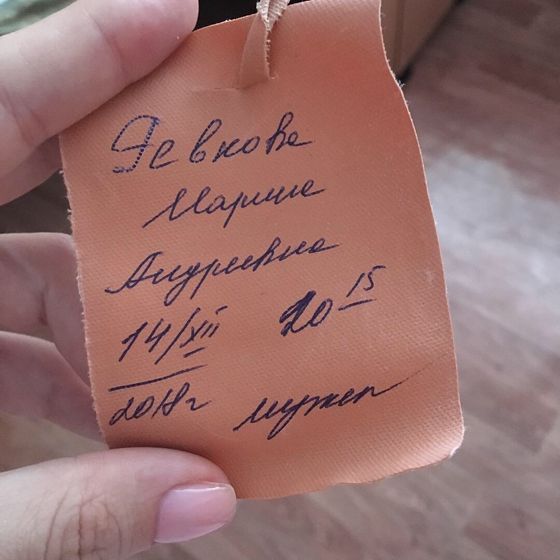 Ревкова
Марина
Андреевна
14/XII 20 15
2018г мужск